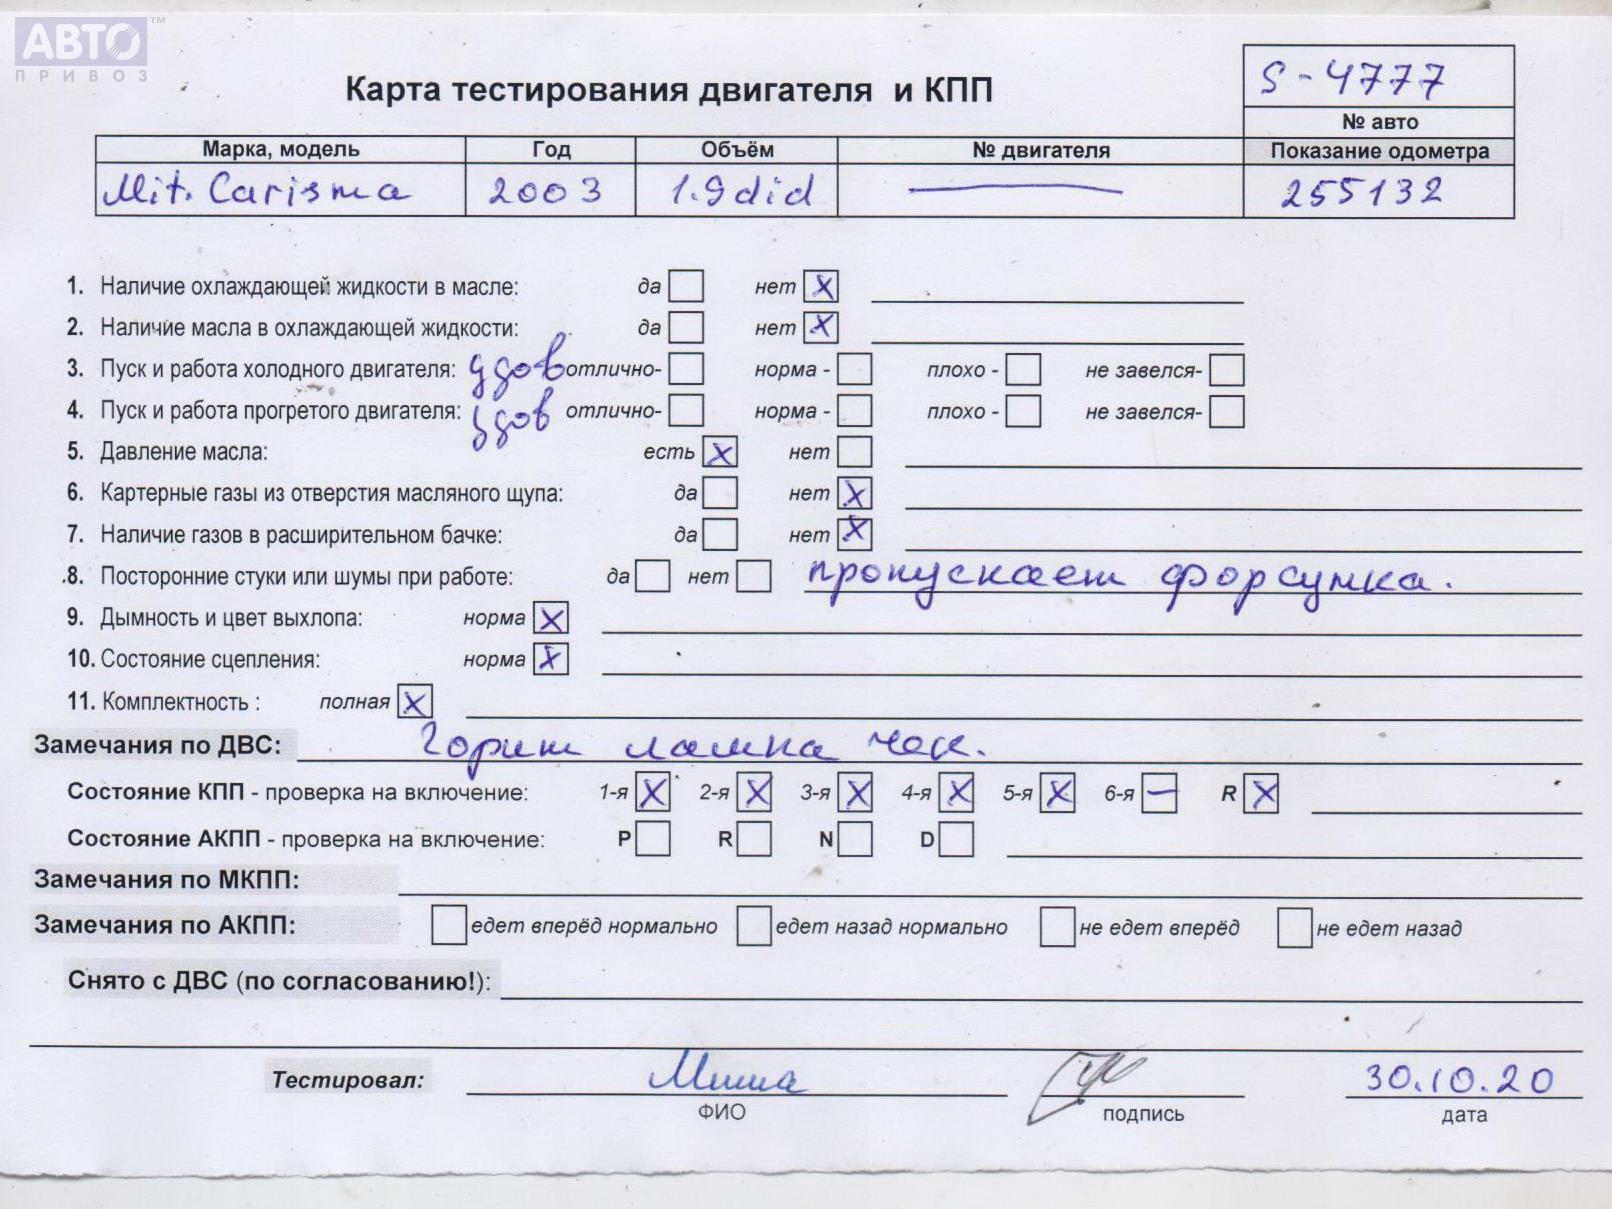 АВТО™
ПРИВОЗ
S-4777
Карта тестирования двигателя и КПП
№ авто
Марка, модель Год Объём № двигателя Показание одометра
Mit. Carisma 2003 1.9 did — 255132
1. Наличие охлаждающей жидкости в масле: да нет X
2. Наличие масла в охлаждающей жидкости: да нет X
3. Пуск и работа холодного двигателя: удов отлично- норма - плохо - не завелся-
4. Пуск и работа прогретого двигателя: удов отлично- норма - плохо - не завелся-
5. Давление масла: есть X нет
6. Картерные газы из отверстия масляного щупа: да нет X
7. Наличие газов в расширительном бачке: да нет X
8. Посторонние стуки или шумы при работе: да нет пропускает форсунка.
9. Дымность и цвет выхлопа: норма X
10. Состояние сцепления: норма X
11. Комплектность : полная X
Замечания по ДВС: Горит лампа чек.
Состояние КПП - проверка на включение: 1-я X 2-я X 3-я X 4-я X 5-я X 6-я — R X
Состояние АКПП - проверка на включение: P R N D
Замечания по МКПП:
Замечания по АКПП: едет вперёд нормально едет назад нормально не едет вперёд не едет назад
Снято с ДВС (по согласованию!):
Тестировал: Миша 30.10.20
ФИО подпись дата